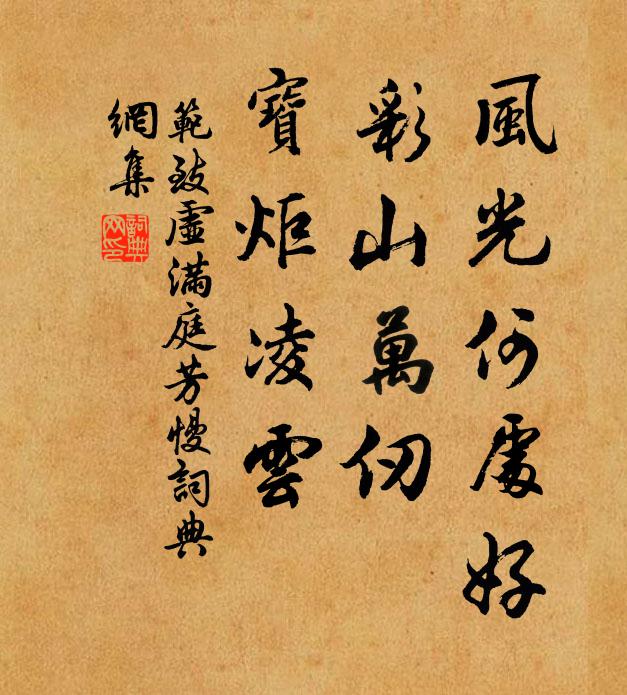 風光何處好
彩山萬仞
寶炬凌雲
範致虛滿庭芳慢詞典
網集
詞典
网印